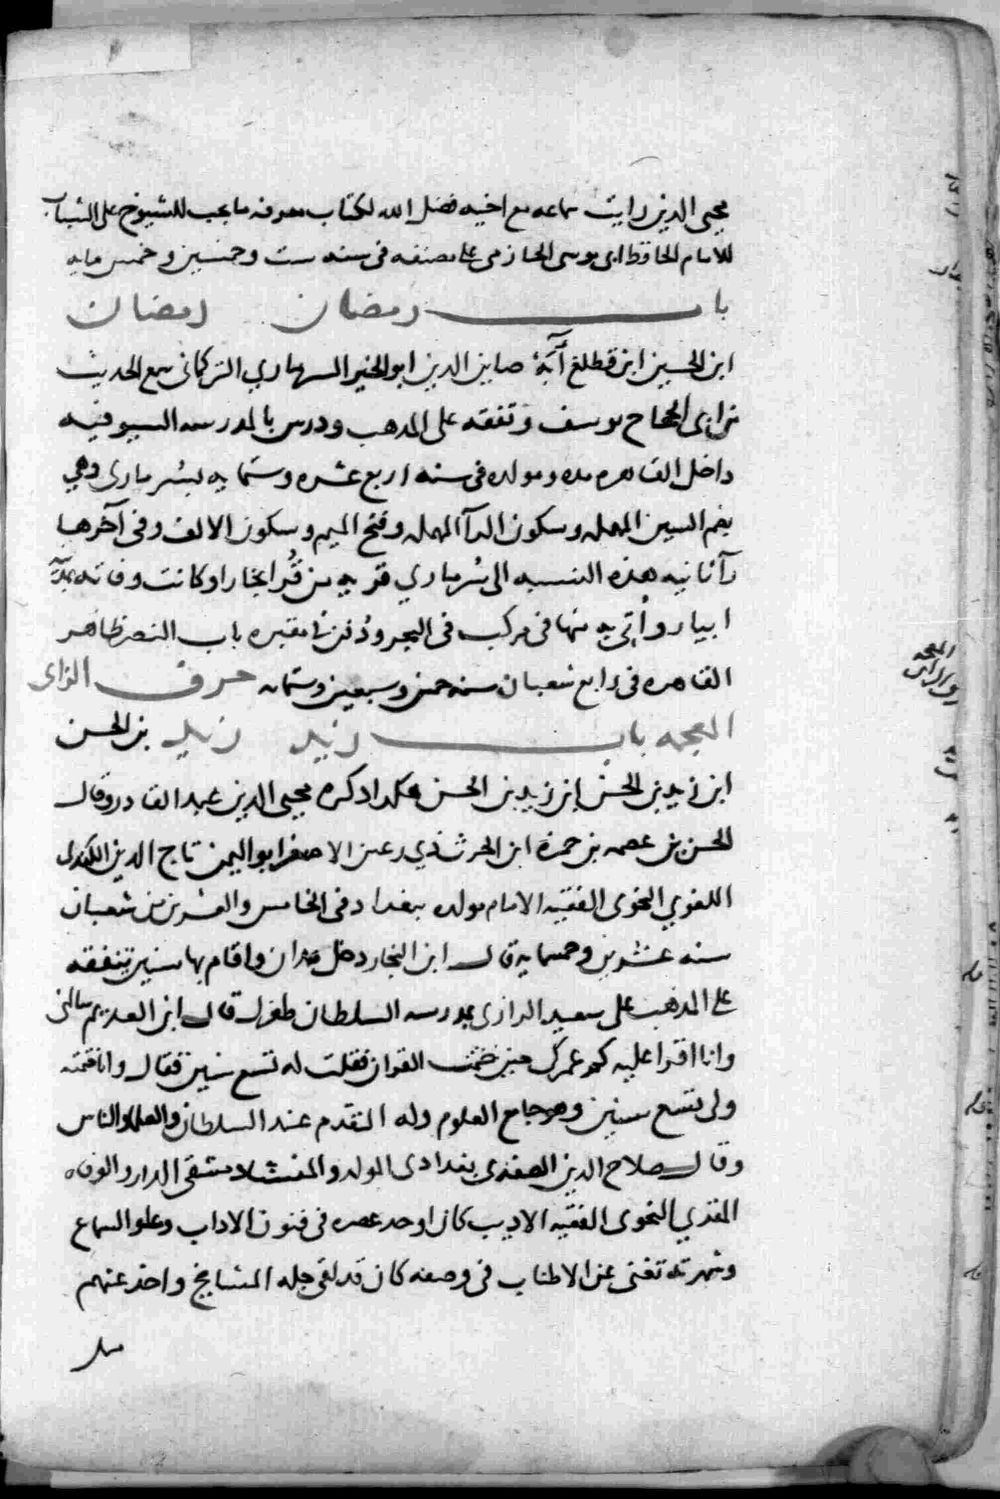 محيى الدين رايت سماعه مع اخيه فضل الله لكتاب معرفه ما يجب للشيوخ على الشباب
للامام الحافظ ابى موسى الحازمى على مصنفه فى سنه ست وخمسين وخمس مايه
باب رمضان رمضان
ابن الحسين ابن قطلغ آبَهْ صاين الدين ابو الخير السرمارى التركمانى سمع الحديث
من ابى الحجاج يوسف وتفقه على المذهب ودرس بالمدرسه السيوفيه
داخل القاهره مده ومولده فى سنه اربع عشره وستمايه بسُرمارى وهى
بضم السين المهمله وسكون الرآ المهمله وفتح الميم وسكون الالف وفى آخرها
رآ ثانيه هذه النسبه الى سُرمارى قريه من قُرا بخارا وكانت وفاته بجزيرة
ابيار واُتى به منها فى مركب فى البحر ودُفن فى مقبره باب النصر ظاهر
القاهره فى رابع شعبان سنه خمس وسبعين وستمايه حرف الزاى
المعجمه باب زيد زيد بن الحسن
ابن زيد بن الحسن ابن زيد بن الحسن هكذا ذكره محيى الدين عبد القادر وقال
الحسن بن عصمه بن حمزة ابن الحرث ذى رعين الاصغر ابو اليمن تاج الدين الكندى
اللغوي النحوى الفقيه الامام مولده ببغداد فى الخامس والعشرين من شعبان
سنه عشرين وخمسمايه قال ابن النجار دخل همدان واقام بها سنين يتفقه
على المذهب على سعيد الرازى بمدرسه السلطان طغرل قال ابن العديم سالنى
وانا اقرا عليه كم عمرك حين ختمت القران فقلت له تسع سنين فقال وانا ختمته
ولى تسع سنين وهو جامع العلوم وله التقدم عند السلطان والعلماء والناس
وقال صلاح الدين الصفدى بغدادى المولد والمنشاء دمشقى الدار والوفاه
المقرى النحوى الفقيه الاديب كان اوحد عصره فى فنون الاداب وعلو السماع
وشهرته تغنى عن الاطناب فى وصفه كان قد لقى جله المشايخ واخذ عنهم